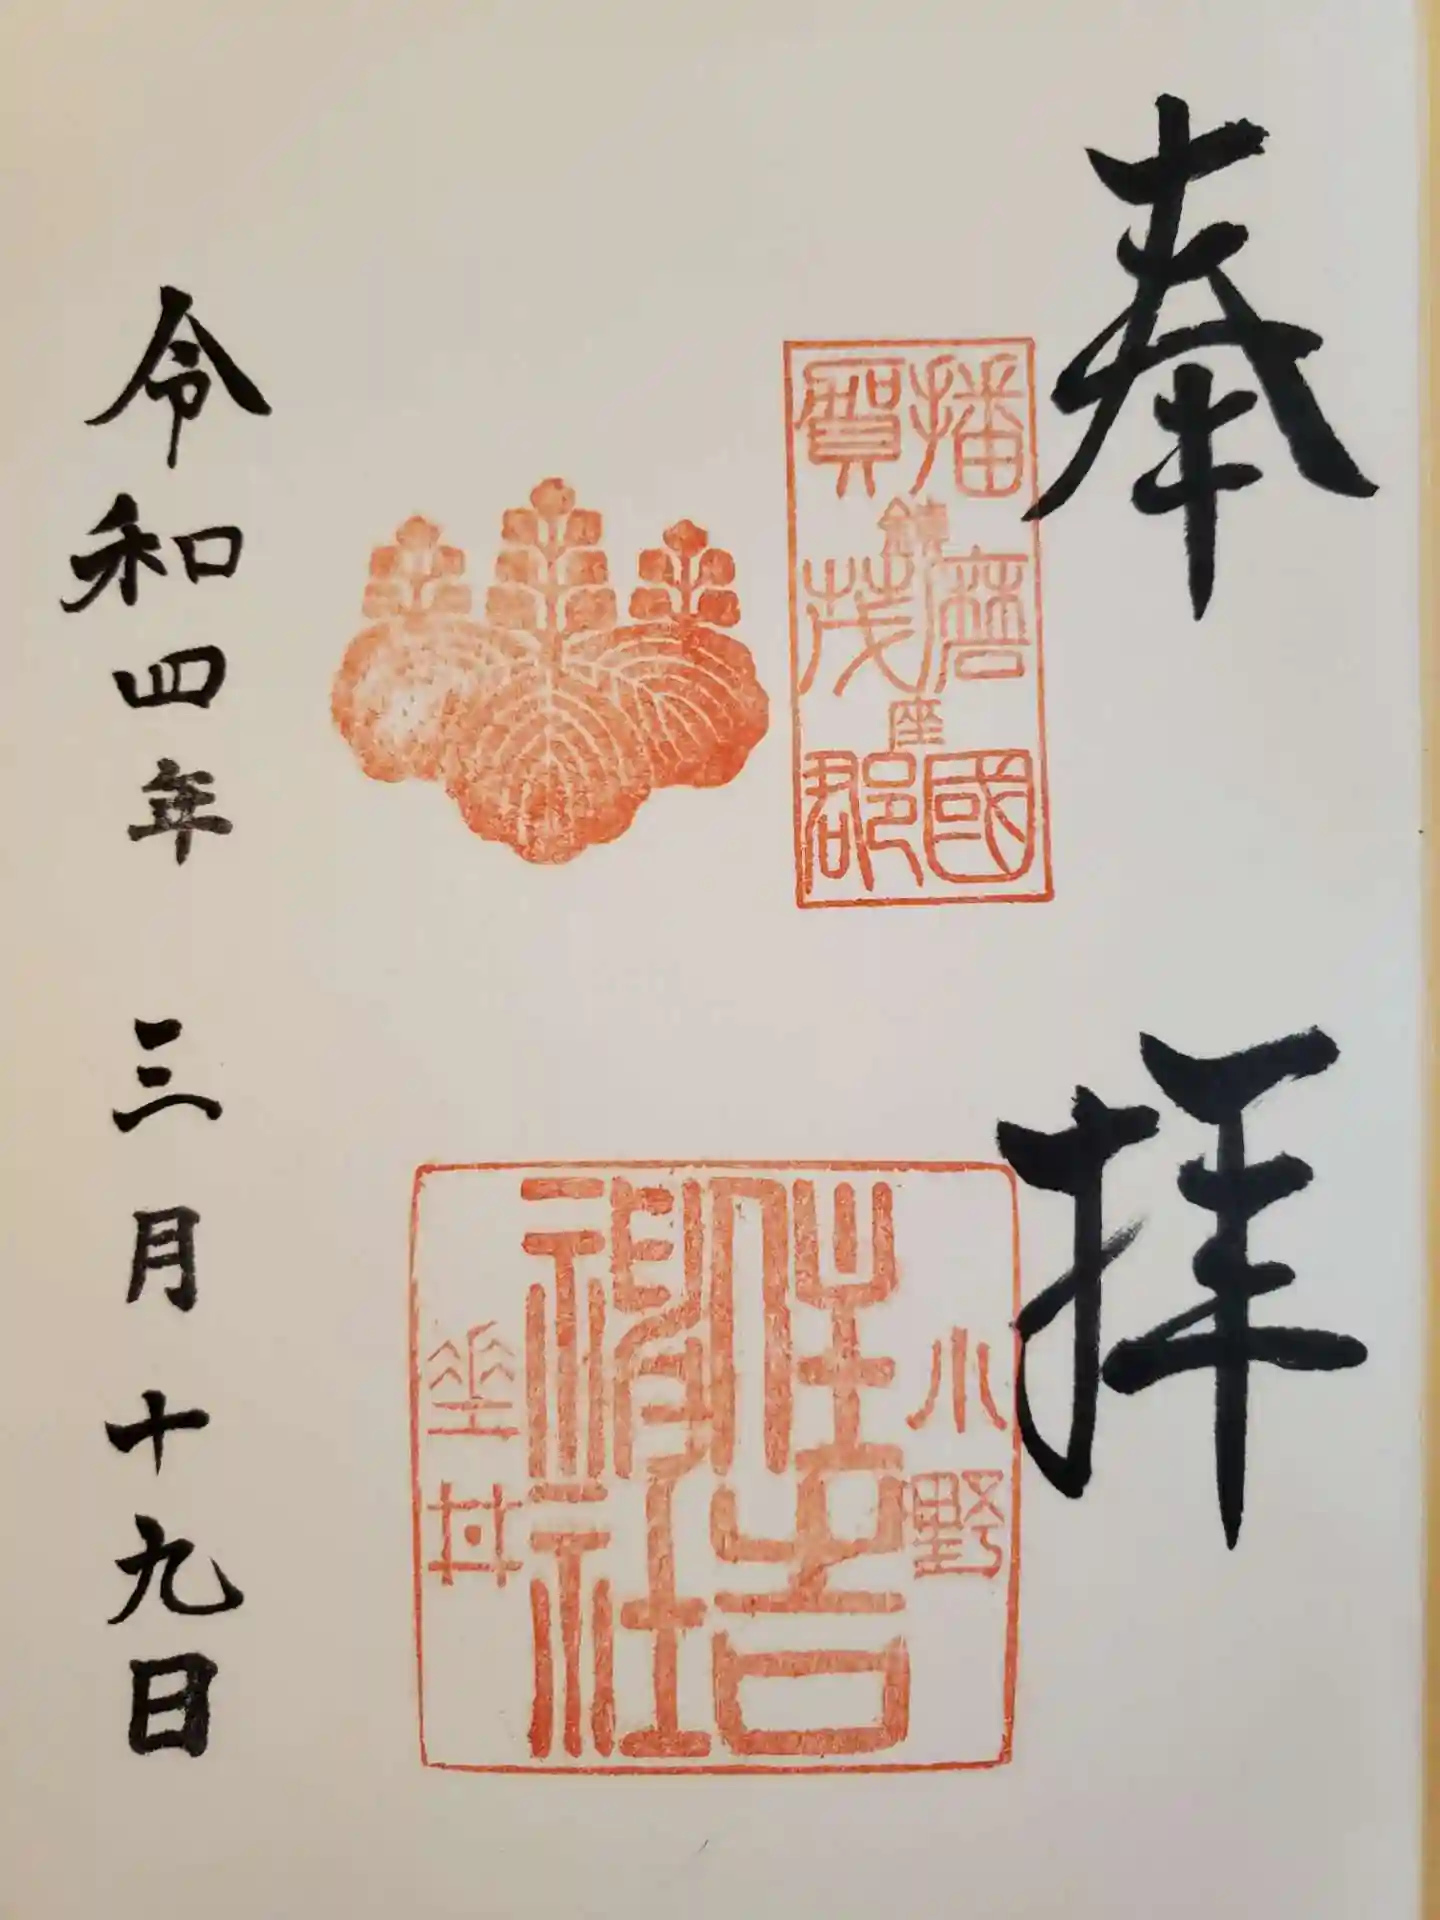 奉拝
播磨國
鎮座
賀茂郡
小野
住吉
神社
垂井
令和四年 三月十九日